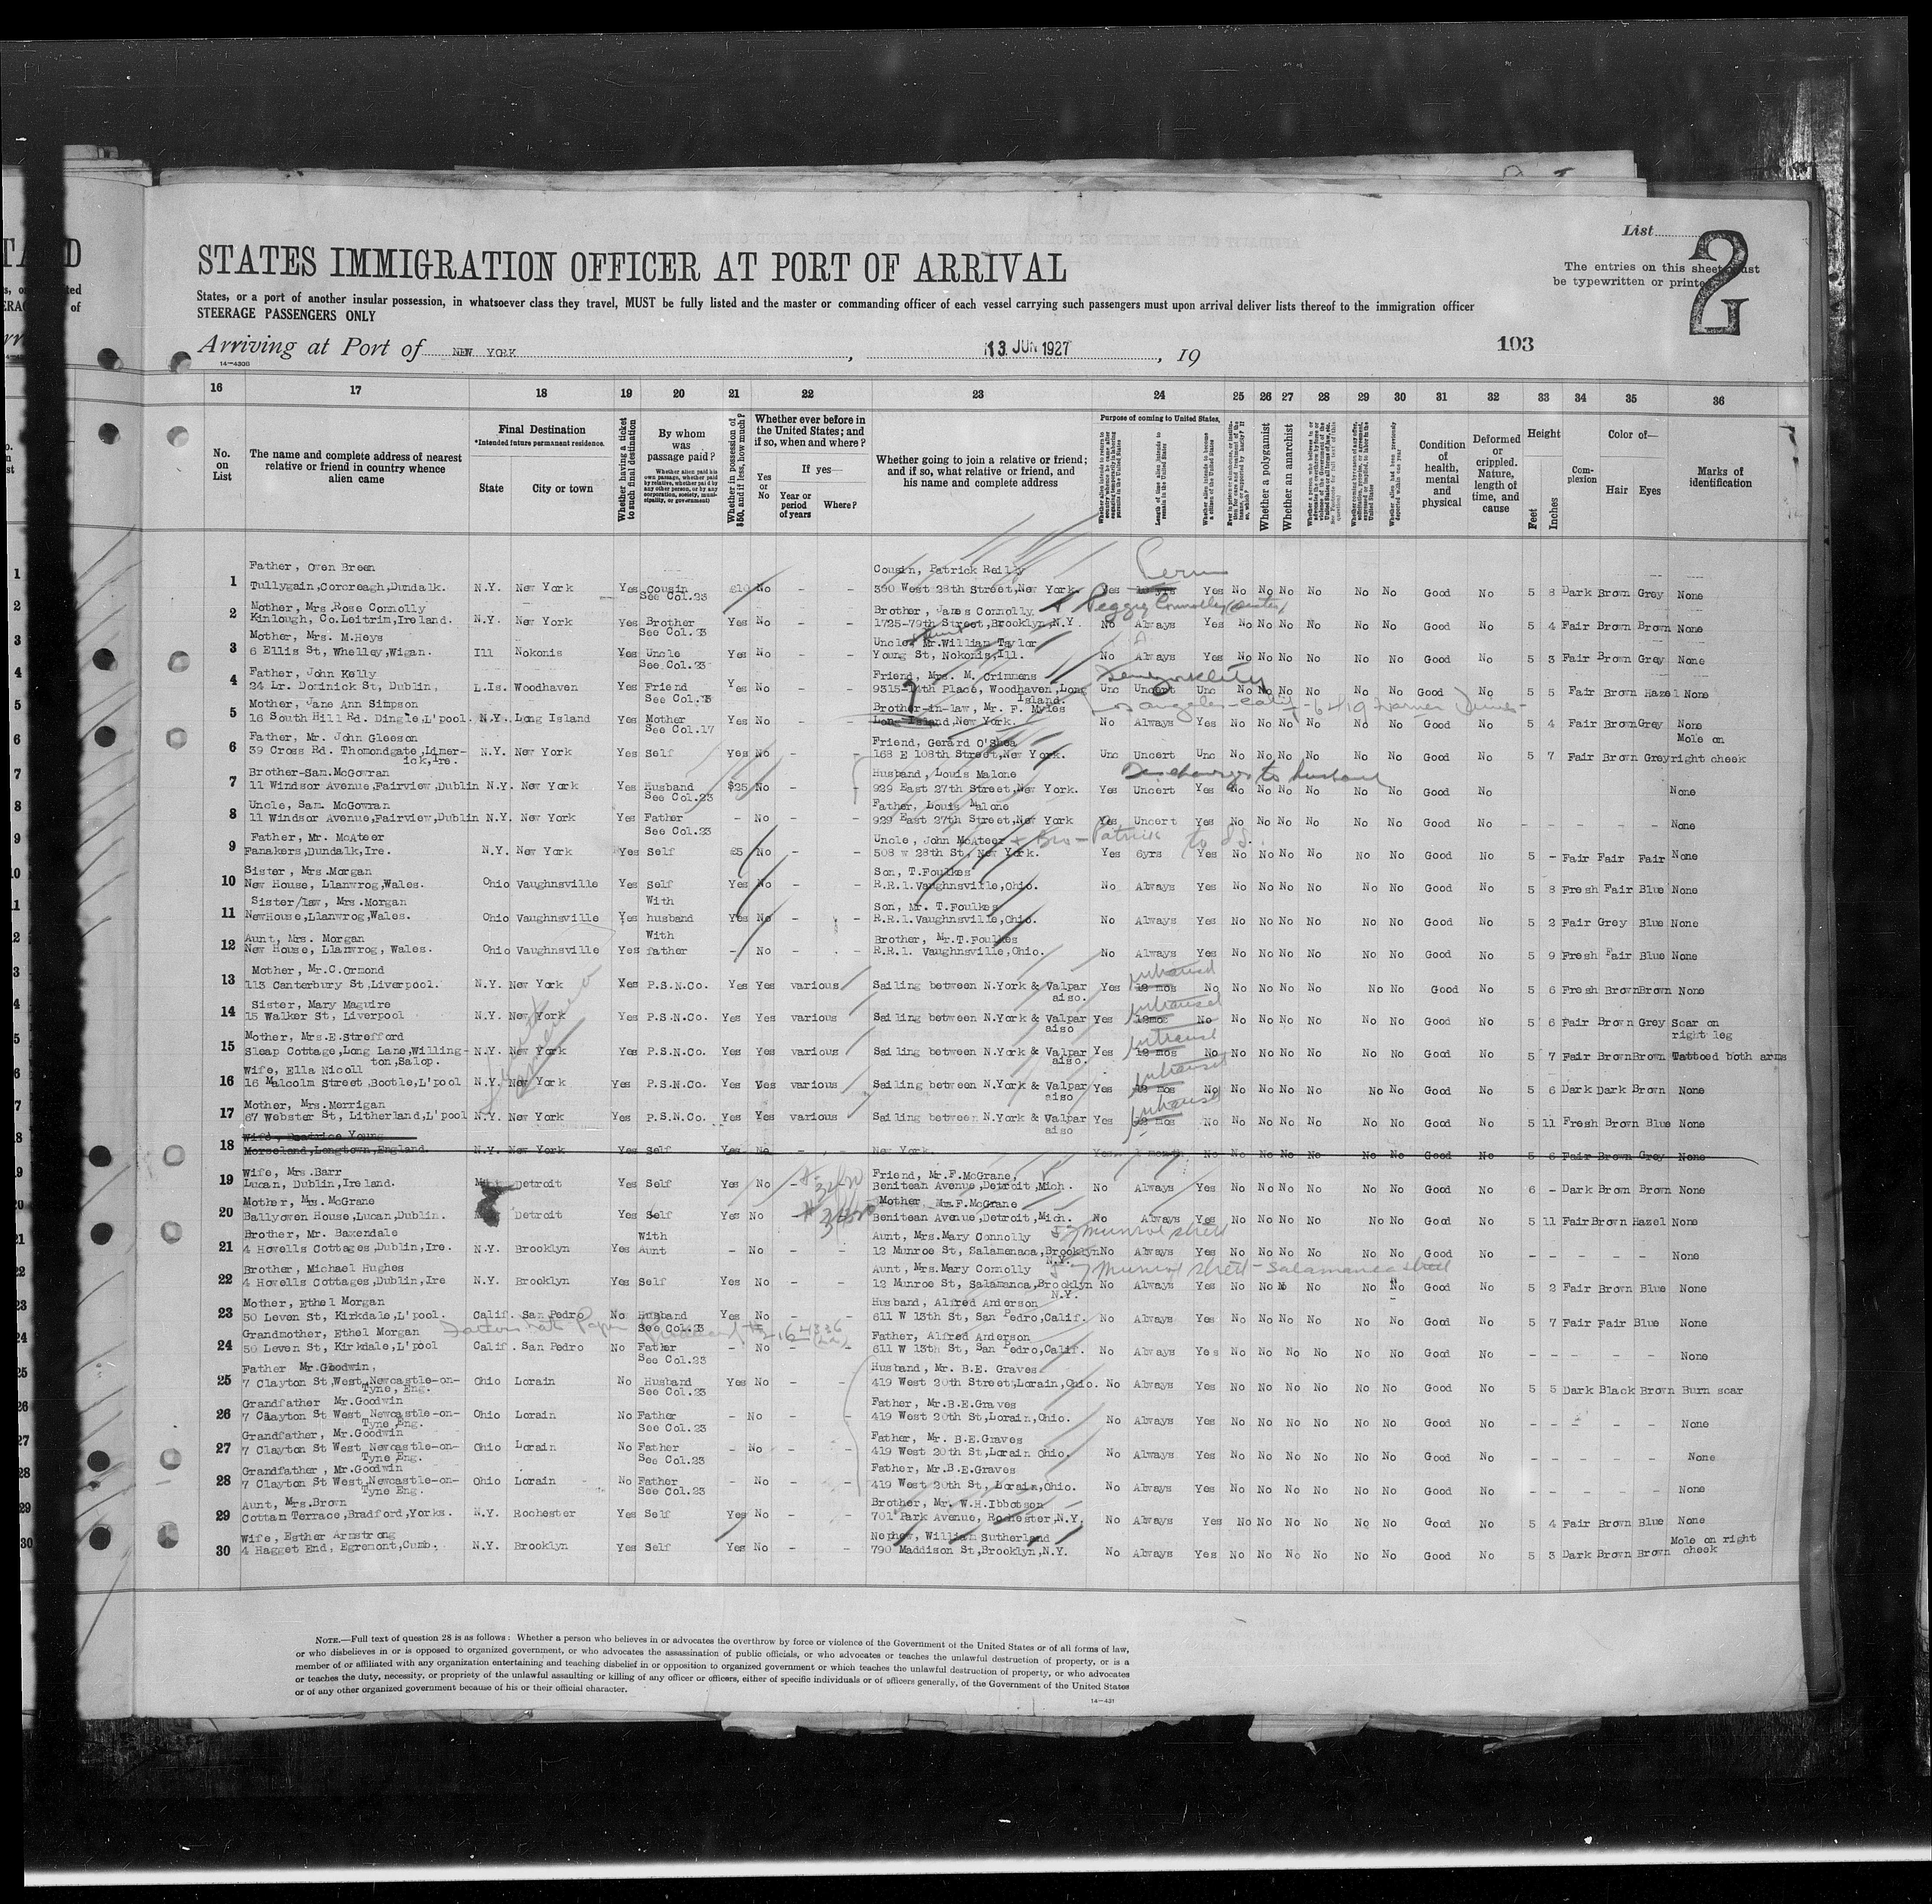 TA D
List
2
STATES IMMIGRATION OFFICER AT PORT OF ARRIVAL
The entries on this sheet must
be typewritten or printe
States, or a port of another insular possession, in whatsoever class they travel, MUST be fully listed and the master or commanding officer of each vessel carrying such passengers must upon arrival deliver lists thereof to the immigration officer
STEERAGE PASSENGERS ONLY
Arriving at Port of NEW YORK, 13 JUN 1927, 19
103
14-430
16 17 18 19 20 21 22 23 24 25 26 27 28 29 30 31 32 33 34 35 36
No. on List
The name and complete address of nearest relative or friend in country whence alien came
Final Destination
*Intended future permanent residence.
State City or town
Whether having a ticket to such final destination
By whom was passage paid?
Whether in possession of $50, and if less, how much?
Whether ever before in the United States; and if so, when and where?
Yes or No
If yes—
Year or period of years
Where?
Whether going to join a relative or friend; and if so, what relative or friend, and his name and complete address
Purpose of coming to United States.
Length of time alien intends to remain in the United States
Whether alien intends to become a citizen of the United States
Whether a polygamist
Whether an anarchist
Condition of health, mental and physical
Deformed or crippled. Nature, length of time, and cause
Height
Feet Inches
Complexion
Color of—
Hair Eyes
Marks of identification
Father, Owen Breen Cousin, Patrick Reilly
1 Tullygain,Corcreagh,Dundalk. N.Y. New York Yes Cousin £10 No - - 390 West 28th Street,New York. Yes Yes No No No No No No Good No 5 8 Dark Brown Grey None
See Col.23
Mother, Mrs.Rose Connolly Brother, James Connolly Peggy Connolly (sister)
2 Kinlough, Co.Leitrim,Ireland. N.Y. New York Yes Brother Yes No - - 1725-79th Street,Brooklyn,N.Y. No Always Yes No No No No No No Good No 5 4 Fair Brown Brown None
See Col.23
Mother, Mrs. M.Heys Uncle, Mr.William Taylor
3 6 Ellis St, Whelley,Wigan. Ill Nokonis Yes Uncle Yes No - - Young St, Nokonis,Ill. No Always Yes No No No No No No Good No 5 3 Fair Brown Grey None
See Col.23
Father, John Kelly Friend, Mrs. M. Crimmens
4 24 Lr. Dominick St, Dublin, L.Is. Woodhaven Yes Friend Yes No - - 9515-14th Place, Woodhaven,Long Island. Unc Uncert Unc No No No No No No Good No 5 5 Fair Brown Hazel None
See Col.23
Mother, Jane Ann Simpson Brother-in-law, Mr. F. Myles Los Angeles - Calif
5 16 South Hill Rd. Dingle,L'pool. N.Y. Long Island Yes Mother Yes No - - Long Island,New York. No Always Yes No No No No No No Good No 5 4 Fair Brown Grey None
See Col.17
Father, Mr. John Gleeson Friend, Gerard O'Shea Mole on
6 39 Cross Rd. Thomondgate,Limer- N.Y. New York Yes Self Yes No - - 168 E 108th Street,New York. Unc Uncert Unc No No No No No No Good No 5 7 Fair Brown Grey right cheek
ick,Ire.
Brother-Sam.McGowran Husband, Louis Malone Discharged to husband
7 11 Windsor Avenue,Fairview,Dublin N.Y. New York Yes Husband $25 No - - 929 East 27th Street,New York. Yes Uncert Yes No No No No No No Good No None
See Col.23
Uncle, Sam. McGowran Father, Louis Malone
8 11 Windsor Avenue,Fairview,Dublin N.Y. New York Yes Father - No - - 929 East 27th Street,New York Yes Uncert Yes No No No No No No Good No - - - - - None
See Col.23
Father, Mr. McAteer Uncle, John McAteer + Bro - Patrick
9 Fanakers,Dundalk,Ire. N.Y. New York Yes Self £5 No - - 508 w 28th St, New York. Yes 6yrs Yes No No No No No No Good No 5 - Fair Fair Fair None
Sister, Mrs.Morgan Son, T.Foulkes
10 New House, Llanwrog,Wales. Ohio Vaughnsville Yes Self Yes No - - R.R.1.Vaughnsville,Ohio. No Always Yes No No No No No No Good No 5 8 Fresh Fair Blue None
Sister/law, Mrs.Morgan With Son, Mr. T.Foulkes
11 NewHouse,Llanwrog,Wales. Ohio Vaughnsville Yes husband Yes No - - R.R.1.Vaughnsville,Ohio. No Always Yes No No No No No No Good No 5 2 Fair Grey Blue None
Aunt, Mrs. Morgan With Brother, Mr.T.Foulkes
12 New House, Llanwrog, Wales. Ohio Vaughnsville Yes father - No - - R.R.1. Vaughnsville,Ohio. No Always Yes No No No No No No Good No 5 9 Fresh Fair Blue None
Mother, Mr.C.Ormond intransit
13 113 Canterbury St,Liverpool. N.Y. New York Yes P.S.N.Co. Yes Yes various Sailing between N.York & Valpar aiso. Yes No No No No No No No Good No 5 6 Fresh Brown Brown None
Sister, Mary Maguire intransit
14 15 Walker St, Liverpool N.Y. New York Yes P.S.N.Co. Yes Yes various Sailing between N.York & Valpar aiso Yes No No No No No No No Good No 5 6 Fair Brown Grey Scar on right leg
Mother, Mrs.E.Strefford intransit
15 Sleap Cottage,Long Lane,Willing- N.Y. New York Yes P.S.N.Co. Yes Yes various Sailing between N.York & Valpar aiso. Yes No No No No No No No Good No 5 7 Fair Brown Brown Tattoed both arms
ton,Salop.
Wife, Ella Nicoll intransit
16 16 Malcolm Street,Bootle,L'pool N.Y. New York Yes P.S.N.Co. Yes Yes various Sailing between N.York & Valpar aiso Yes No No No No No No No Good No 5 6 Dark Dark Brown None
Mother, Mrs.Merrigan intransit
17 67 Webster St, Litherland,L'pool N.Y. New York Yes P.S.N.Co. Yes Yes various Sailing between N.York & Valpar aiso Yes No No No No No No No Good No 5 11 Fresh Brown Blue None
Wife, Beatrice Young
18 Morseland,Longtown,England. N.Y. New York Yes Self Yes No - - New York. Yes 1 month No No No No No No No Good No 5 6 Fair Brown Grey None
Wife, Mrs.Barr Friend, Mr.F.McGrane,
19 Lucan, Dublin,Ireland. Detroit Yes Self Yes No - - Benitean Avenue,Detroit,Mich. No Always Yes No No No No No No Good No 6 - Dark Brown Brown None
Mother, Mrs. McGrane Mother, Mrs.F.McGrane
20 Ballyowen House,Lucan,Dublin. Detroit Yes Self Yes No Benitean Avenue,Detroit,Mich. No Always Yes No No No No No No Good No 5 11 Fair Brown Hazel None
Brother, Mr. Baxendale With Aunt, Mrs.Mary Connolly 57 Munroe street
21 4 Howells Cottages,Dublin,Ire. N.Y. Brooklyn Yes Aunt - No - - 12 Munroe St, Salamenaca,Brooklyn N.Y. No Always Yes No No No No No No Good No - - - - - None
Brother, Michael Hughes Aunt, Mrs.Mary Connolly 57 Munroe street - Salamanca street
22 4 Howells Cottages,Dublin,Ire N.Y. Brooklyn Yes Self Yes No - - 12 Munroe St, Salamanca,Brooklyn N.Y. No Always Yes No No No No No No Good No 5 2 Fair Brown Blue None
Mother, Ethel Morgan Husband, Alfred Anderson
23 50 Leven St, Kirkdale,L'pool. Calif. San Pedro No Husband Yes No - - 611 W 13th St, San Pedro,Calif. No Always Yes No No No No No No Good No 5 7 Fair Fair Blue None
See Col.23
Grandmother, Ethel Morgan Father, Alfred Anderson
24 50 Leven St, Kirkdale,L'pool Calif. San Pedro No Father - No - - 611 W 13th St, San Pedro,Calif. No Always Yes No No No No No No Good No - - - - - None
See Col.23
Father Mr.Goodwin, Husband, Mr. B.E. Graves
25 7 Clayton St,West,Newcastle-on- Ohio Lorain No Husband Yes No - - 419 West 20th Street,Lorain,Ohio. No Always Yes No No No No No No Good No 5 5 Dark Black Brown Burn scar
Tyne, Eng. See Col.23
Grandfather Mr.Goodwin Father, Mr.B.E.Graves
26 7 Clayton St West, Newcastle-on- Ohio Lorain No Father - No - - 419 West 20th St,Lorain,Ohio. No Always Yes No No No No No No Good No - - - - - None
Tyne Eng. See Col.23
Grandfather, Mr.Goodwin Father, Mr. B.E.Graves
27 7 Clayton St West Newcastle-on- Ohio Lorain No Father - No - - 419 West 20th St,Lorain Ohio. No Always Yes No No No No No No Good No - - - - - None
Tyne Eng. See Col.23
Grandfather, Mr.Goodwin Father, Mr.B.E.Graves
28 7 Clayton St West,Newcastle-on- Ohio Lorain No Father - No - - 419 West 20th St, Lorain,Ohio. No Always Yes No No No No No No Good No - - - - - None
Tyne Eng. See Col.23
Aunt, Mrs.Brown Brother, Mr. W.H.Ibbotson
29 Cottam Terrace,Bradford,Yorks. N.Y. Rochester Yes Self Yes No - - 701 Park Avenue, Rochester,N.Y. No Always Yes No No No No No No Good No 5 4 Fair Brown Blue None
Wife, Esther Armstrong Nephew, William Sutherland Mole on right
30 4 Hagget End, Egremont,Cumb. N.Y. Brooklyn Yes Self Yes No - - 790 Maddison St,Brooklyn,N.Y. No Always Yes No No No No No No Good No 5 3 Dark Brown Brown cheek
NOTE.—Full text of question 28 is as follows: Whether a person who believes in or advocates the overthrow by force or violence of the Government of the United States or of all forms of law,
or who disbelieves in or is opposed to organized government, or who advocates the assassination of public officials, or who advocates or teaches the unlawful destruction of property, or is a
member of or affiliated with any organization entertaining and teaching disbelief in or opposition to organized government or which teaches the unlawful destruction of property, or who advocates
or teaches the duty, necessity, or propriety of the unlawful assaulting or killing of any officer or officers, either of specific individuals or of officers generally, of the Government of the United States
or of any other organized government because of his or their official character.
14-431